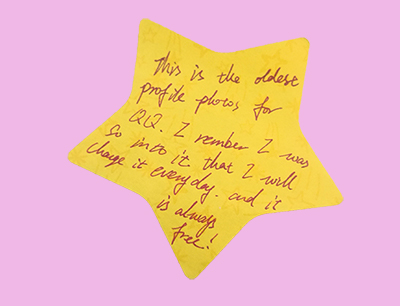 This is the oldest
profile photos for
QQ. I rember I was
so into it that I will
change it everyday. and it
is always
free!